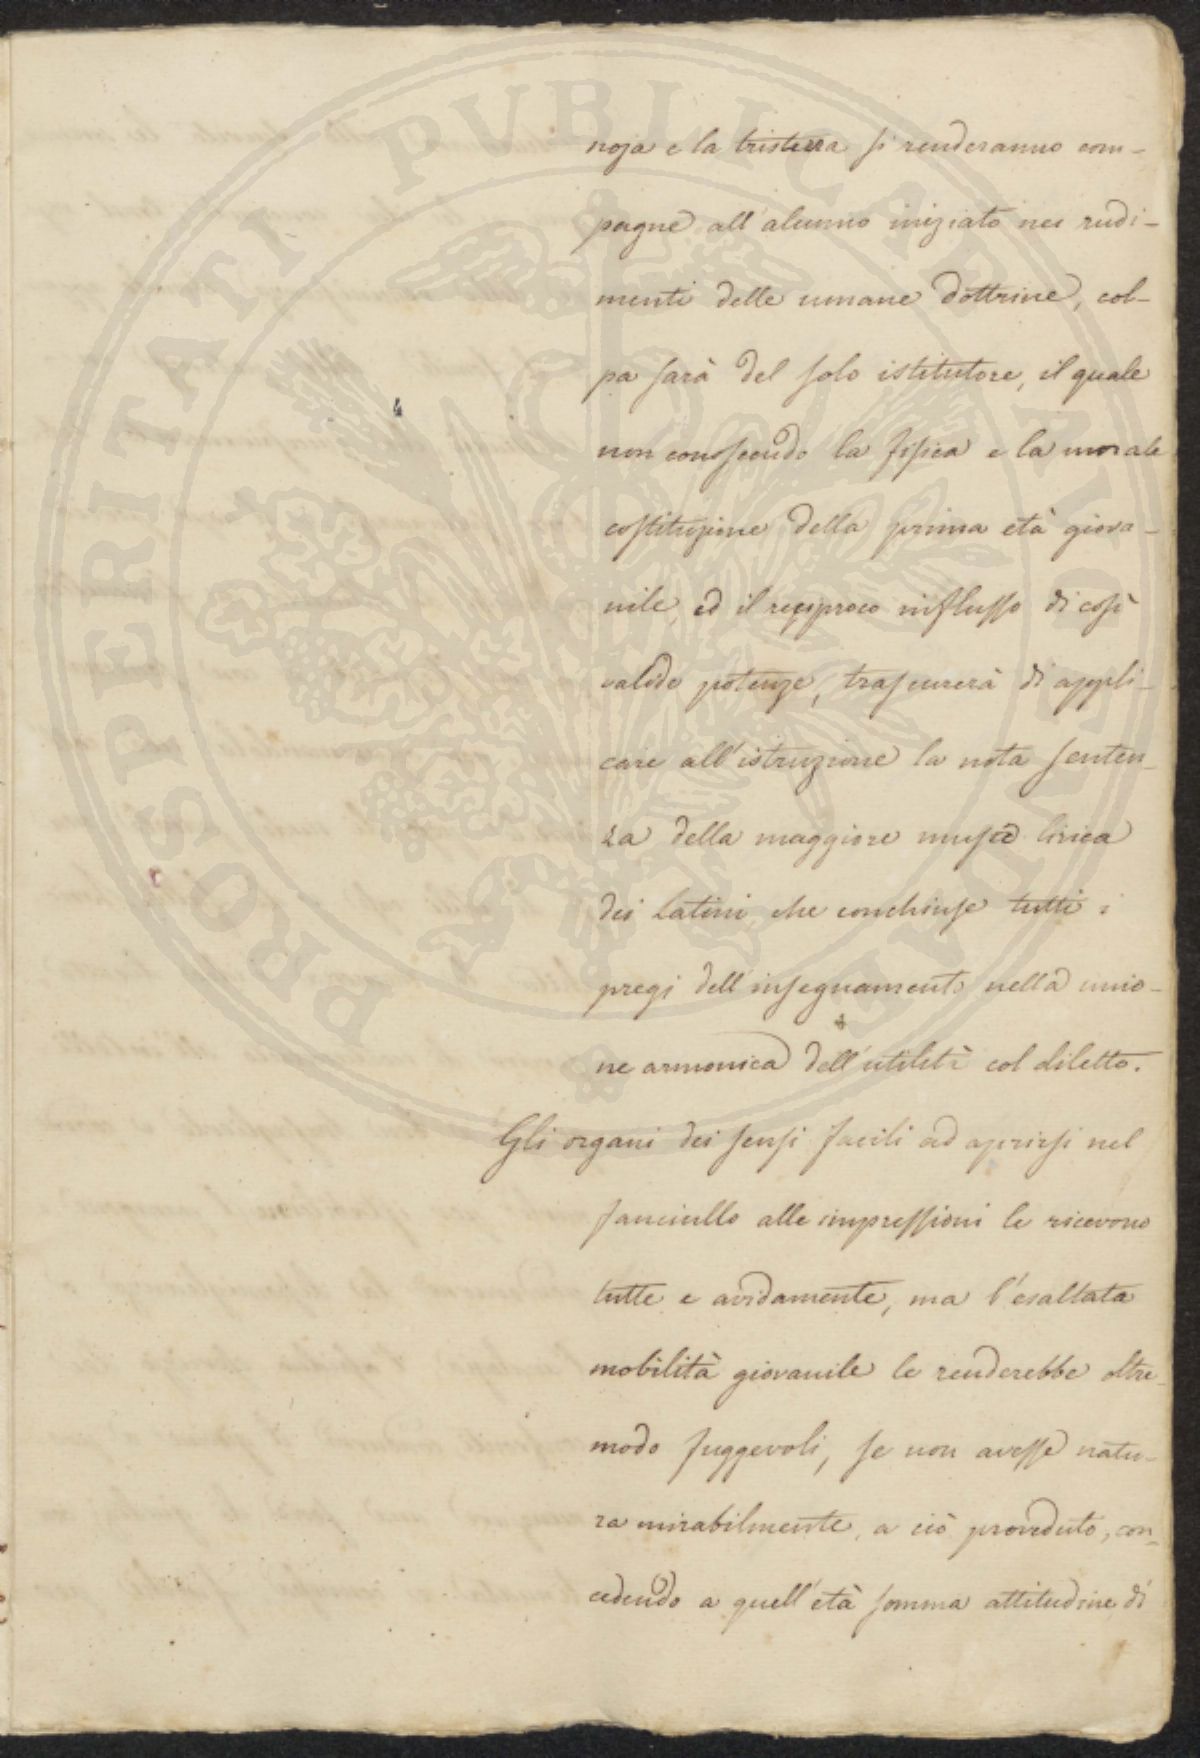 noja e la tristezza si renderanno com-
pagne all'alunno iniziato nei rudi-
menti delle umane dottrine, col-
pa sarà del solo istitutore, il quale
non conoscendo la fisica e la morale
costituzione della prima età giova-
nile, ed il reciproco influsso di così
valide potenze, trascurerà di appli-
care all'istruzione la nota senten-
za della maggiore musa lirica
dei Latini che conchiuse tutti i
pregi dell'insegnamento nella unio-
ne armonica dell'utilità col diletto.
Gli organi dei sensi facili ad aprirsi nel
fanciullo alle impressioni le ricevono
tutte e avidamente, ma l'esaltata
mobilità giovanile le renderebbe oltre-
modo fuggevoli, se non avesse natu-
ra mirabilmente a ciò proveduto, con-
cedendo a quell'età somma attitudine di
PROSPERITATI PUBLICAE AUGENDAE